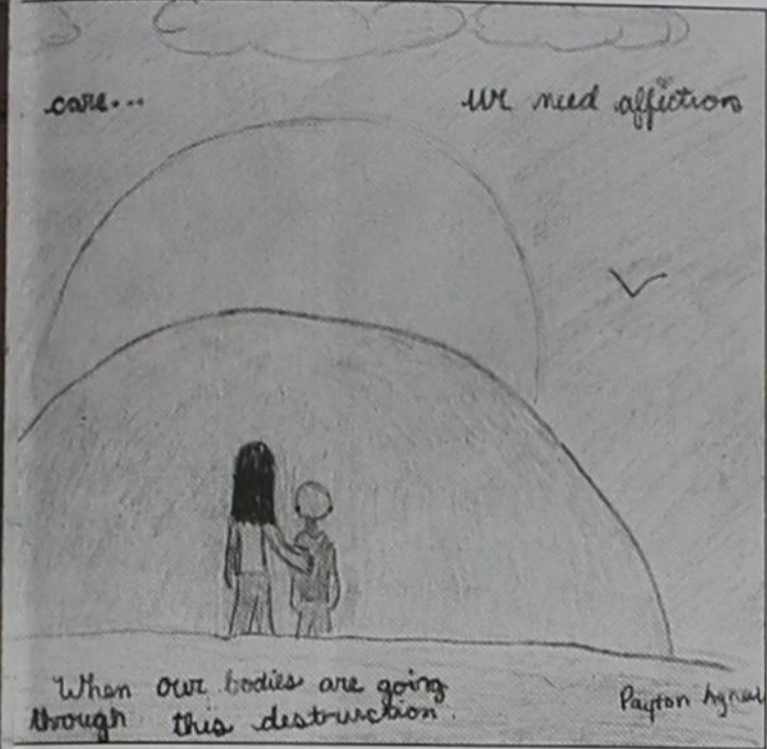 care...
We need affection
When our bodies are going
through this destruction.
Payton Agnew